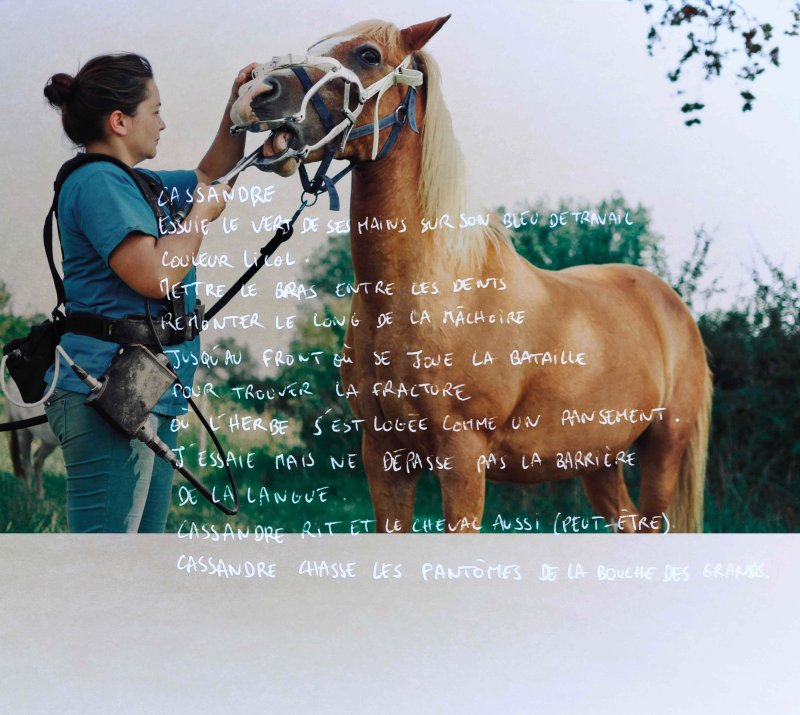 CASSANDRE
ESSUIE LE VERT DE SES MAINS SUR SON BLEU DE TRAVAIL
COULEUR LICOL.
METTRE LE BRAS ENTRE LES DENTS
REMONTER LE LONG DE LA MÂCHOIRE
JUSQU'AU FRONT OÙ SE JOUE LA BATAILLE
POUR TROUVER LA FRACTURE
OÙ L'HERBE S'EST LOGÉE COMME UN PANSEMENT.
J'ESSAIE MAIS NE DÉPASSE PAS LA BARRIÈRE
DE LA LANGUE.
CASSANDRE RIT ET LE CHEVAL AUSSI (PEUT-ÊTRE).
CASSANDRE CHASSE LES FANTÔMES DE LA BOUCHE DES GRANDS.